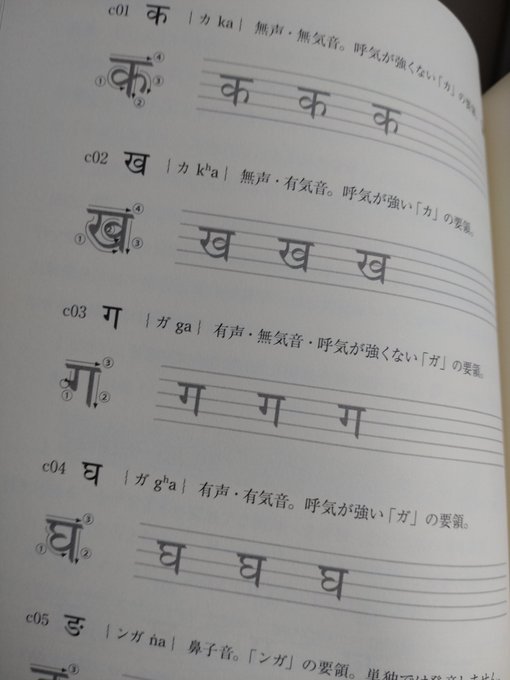 c01 क |カ ka| 無声・無気音。呼気が強くない「カ」の要領。
क ① ② ③ ④ क क क
c02 ख |カ kʰa| 無声・有気音。呼気が強い「カ」の要領。
ख ① ② ③ ④ ख ख ख
c03 ग |ガ ga| 有声・無気音・呼気が強くない「ガ」の要領。
ग ① ② ③ ग ग ग
c04 घ |ガ gʰa| 有声・有気音。呼気が強い「ガ」の要領。
घ ① ② ③ घ घ घ
c05 ङ |ンガ ṅa| 鼻子音。「ンガ」の要領。単独では発音しません
③